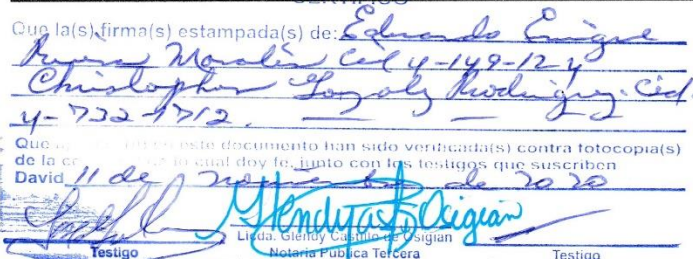 CERTIFICO
Que la(s) firma(s) estampada(s) de: Eduardo Enrique
Rivera Morales Céd 4-149-12 y
Christopher Gonzalez Rodriguez Céd.
4-732-1712.
Que en este documento han sido verificada(s) contra fotocopia(s)
de la lo cual doy fe, junto con los testigos que suscriben
David 11 de noviembre de 2020
Licda. Glendy Castillo de Osigian
Testigo Notaria Pública Tercera Testigo